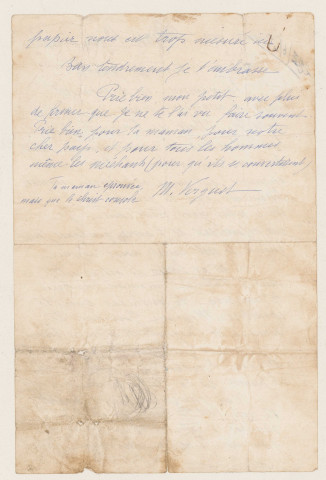 papier nous est trop mesuré ici
Bien tendrement je t'embrasse
Prie bien mon petit avec plus
de que je ne t'ai vu faire souvent
Prie bien pour ta maman pour notre
cher pays, et pour tous les hommes
même les méchants (pour qu'ils se convertissent)
Ta maman
mais que le console M.